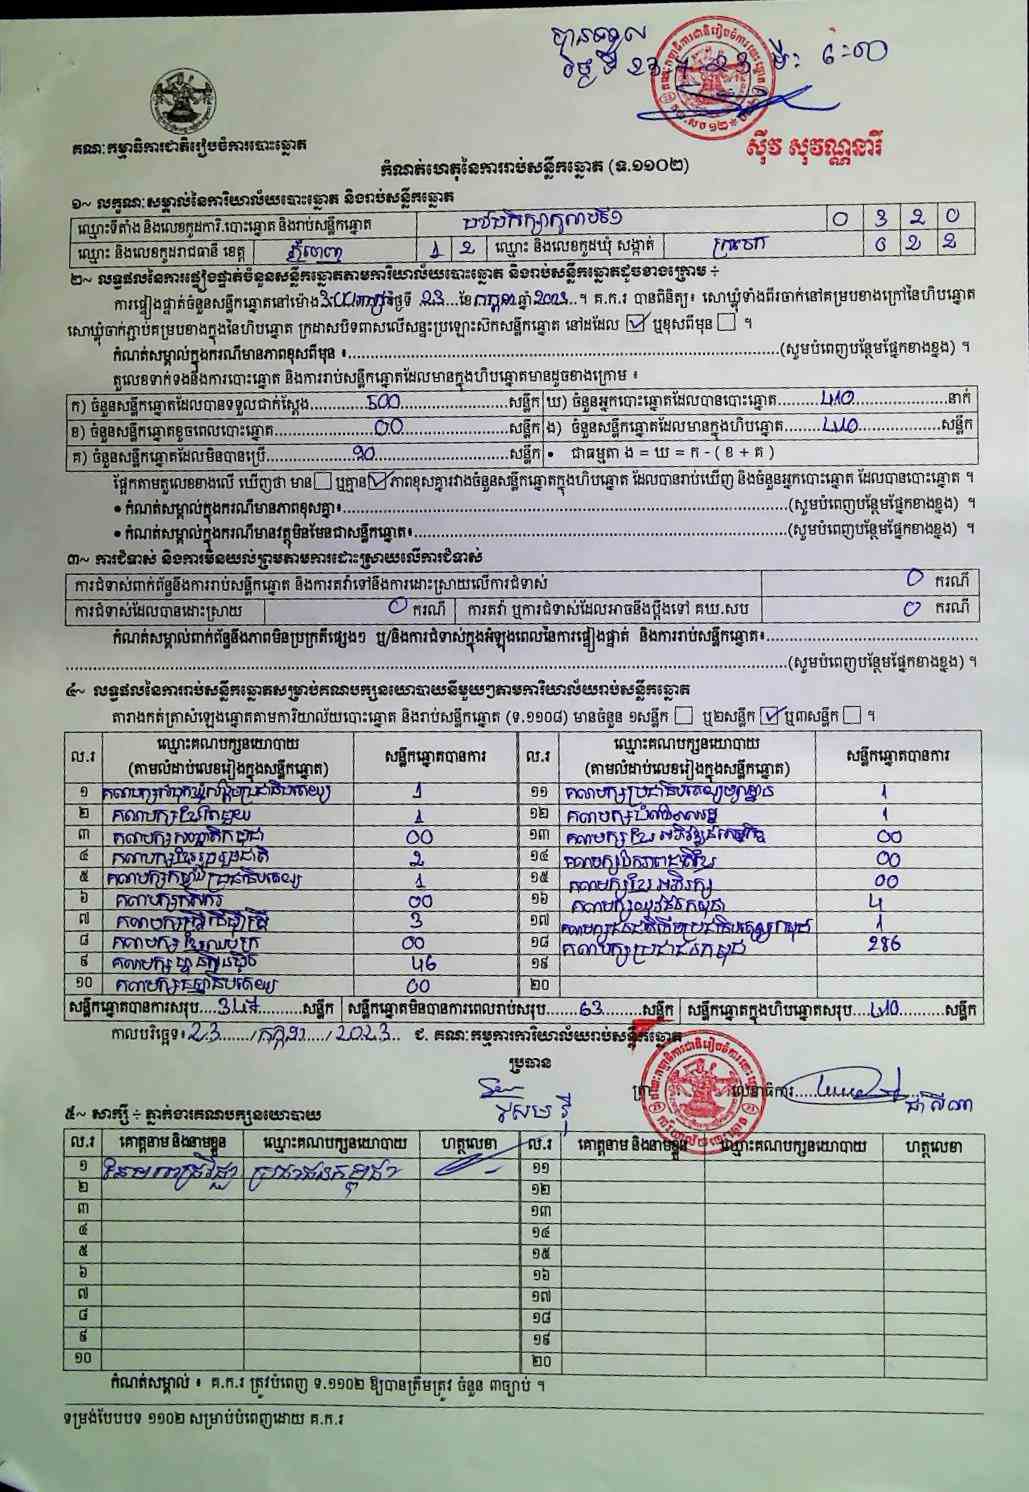 បានទទួល
ថ្ងៃទី 23
គណៈកម្មាធិការជាតិរៀបចំការបោះឆ្នោត
ស៊ីវ សុវណ្ណនារី
កំណត់ហេតុនៃការរាប់សន្លឹកឆ្នោត (ទ.១១០២)
១~ លក្ខណៈសម្គាល់នៃការិយាល័យបោះឆ្នោត និងរាប់សន្លឹកឆ្នោត
ឈ្មោះទីតាំង និងលេខកូដការិ.បោះឆ្នោត និងរាប់សន្លឹកឆ្នោត 0 3 2 0
ឈ្មោះ និងលេខកូដរាជធានី ខេត្ត ភ្នំពេញ 1 2 ឈ្មោះ និងលេខកូដឃុំ សង្កាត់ 0 2 2
២~ លទ្ធផលនៃការផ្ទៀងផ្ទាត់ចំនួនសន្លឹកឆ្នោតតាមការិយាល័យបោះឆ្នោត និងរាប់សន្លឹកឆ្នោតដូចខាងក្រោម ÷
ការផ្ទៀងផ្ទាត់ចំនួនសន្លឹកឆ្នោតនៅម៉ោង ថ្ងៃទី 23 ខែ កក្កដា ឆ្នាំ 2023 ។ គ.ក.រ បានពិនិត្យ៖ សោឃ្លុំទាំងពីរចាក់នៅគម្របខាងក្រៅនៃហិបឆ្នោត
សោឃ្លុំចាក់ភ្ជាប់គម្របខាងក្នុងនៃហិបឆ្នោត ក្រដាសបិទពាសលើសន្ទះប្រឡោះស៊កសន្លឹកឆ្នោត នៅដដែល ☑ ឬខុសពីមុន ☐ ។
កំណត់សម្គាល់ក្នុងករណីមានភាពខុសពីមុន ៖ (សូមបំពេញបន្ថែមផ្នែកខាងខ្នង) ។
តួលេខទាក់ទងនឹងការបោះឆ្នោត និងការរាប់សន្លឹកឆ្នោតដែលមានក្នុងហិបឆ្នោតមានដូចខាងក្រោម ៖
ក) ចំនួនសន្លឹកឆ្នោតដែលបានទទួលជាក់ស្តែង 500 សន្លឹក ឃ) ចំនួនអ្នកបោះឆ្នោតដែលបានបោះឆ្នោត 410 នាក់
ខ) ចំនួនសន្លឹកឆ្នោតខូចពេលបោះឆ្នោត 00 សន្លឹក ង) ចំនួនសន្លឹកឆ្នោតដែលមានក្នុងហិបឆ្នោត 410 សន្លឹក
គ) ចំនួនសន្លឹកឆ្នោតដែលមិនបានប្រើ 90 សន្លឹក • ជាធម្មតា ង = ឃ = ក - ( ខ + គ )
ផ្អែកតាមតួលេខខាងលើ ឃើញថា មាន ☐ ឬគ្មាន ☑ ភាពខុសគ្នារវាងចំនួនសន្លឹកឆ្នោតក្នុងហិបឆ្នោត ដែលបានរាប់ឃើញ និងចំនួនអ្នកបោះឆ្នោត ដែលបានបោះឆ្នោត ។
• កំណត់សម្គាល់ក្នុងករណីមានភាពខុសគ្នា៖ (សូមបំពេញបន្ថែមផ្នែកខាងខ្នង) ។
• កំណត់សម្គាល់ក្នុងករណីមានវត្ថុមិនមែនជាសន្លឹកឆ្នោត៖ (សូមបំពេញបន្ថែមផ្នែកខាងខ្នង) ។
៣~ ការជំទាស់ និងការមិនយល់ព្រមតាមការដោះស្រាយលើការជំទាស់
ការជំទាស់ពាក់ព័ន្ធនឹងការរាប់សន្លឹកឆ្នោត និងការតវ៉ាទៅនឹងការដោះស្រាយលើការជំទាស់ 0 ករណី
ការជំទាស់ដែលបានដោះស្រាយ 0 ករណី ការតវ៉ា ឬការជំទាស់ដែលអាចនឹងប្តឹងទៅ គឃ.សប 0 ករណី
កំណត់សម្គាល់ពាក់ព័ន្ធនឹងភាពមិនប្រក្រតីផ្សេងៗ ឬ/និងការជំទាស់ក្នុងអំឡុងពេលនៃការផ្ទៀងផ្ទាត់ និងការរាប់សន្លឹកឆ្នោត៖
(សូមបំពេញបន្ថែមផ្នែកខាងខ្នង) ។
៤~ លទ្ធផលនៃការរាប់សន្លឹកឆ្នោតសម្រាប់គណបក្សនយោបាយនីមួយៗតាមការិយាល័យរាប់សន្លឹកឆ្នោត
តារាងកត់ត្រាសំឡេងឆ្នោតតាមការិយាល័យបោះឆ្នោត និងរាប់សន្លឹកឆ្នោត (ទ.១១០៨) មានចំនួន ១សន្លឹក ☐ ឬ២សន្លឹក ☑ ឬ៣សន្លឹក ☐ ។
ល.រ ឈ្មោះគណបក្សនយោបាយ (តាមលំដាប់លេខរៀងក្នុងសន្លឹកឆ្នោត) សន្លឹកឆ្នោតបានការ ល.រ ឈ្មោះគណបក្សនយោបាយ (តាមលំដាប់លេខរៀងក្នុងសន្លឹកឆ្នោត) សន្លឹកឆ្នោតបានការ
១ 1 ១១ 1
២ គណបក្សខ្មែរតែមួយ 1 ១២ 1
៣ 00 ១៣ គណបក្សខ្មែរអភិវឌ្ឍន៍សេដ្ឋកិច្ច 00
៤ គណបក្សខ្មែររួបរួមជាតិ 2 ១៤ គណបក្សឯកភាពជាតិខ្មែរ 00
៥ 1 ១៥ គណបក្សខ្មែរអភិរក្ស 00
៦ គណបក្សកសិករ 00 ១៦ គណបក្សយុវជនកម្ពុជា 4
៧ 3 ១៧ 1
៨ គណបក្សខ្មែរឈប់ក្រ 00 ១៨ គណបក្សប្រជាជនកម្ពុជា 286
៩ គណបក្សហ្វ៊ុនស៊ិនប៉ិច 46 ១៩
១០ គណបក្សធម្មាធិបតេយ្យ 00 ២០
សន្លឹកឆ្នោតបានការសរុប 347 សន្លឹក សន្លឹកឆ្នោតមិនបានការពេលរាប់សរុប 63 សន្លឹក សន្លឹកឆ្នោតក្នុងហិបឆ្នោតសរុប 410 សន្លឹក
កាលបរិច្ឆេទ៖ 23 / កក្កដា / 2023 ជ. គណៈកម្មការការិយាល័យរាប់សន្លឹកឆ្នោត
ប្រធាន
ត្រា លេខាធិការ
៥~ សាក្សី ÷ ភ្នាក់ងារគណបក្សនយោបាយ
ល.រ គោត្តនាម និងនាមខ្លួន ឈ្មោះគណបក្សនយោបាយ ហត្ថលេខា ល.រ គោត្តនាម និងនាមខ្លួន ឈ្មោះគណបក្សនយោបាយ ហត្ថលេខា
១ ប្រជាជនកម្ពុជា ១១
២ ១២
៣ ១៣
៤ ១៤
៥ ១៥
៦ ១៦
៧ ១៧
៨ ១៨
៩ ១៩
១០ ២០
កំណត់សម្គាល់ ៖ គ.ក.រ ត្រូវបំពេញ ទ.១១០២ ឱ្យបានត្រឹមត្រូវ ចំនួន ៣ច្បាប់ ។
ទម្រង់បែបបទ ១១០២ សម្រាប់បំពេញដោយ គ.ក.រ